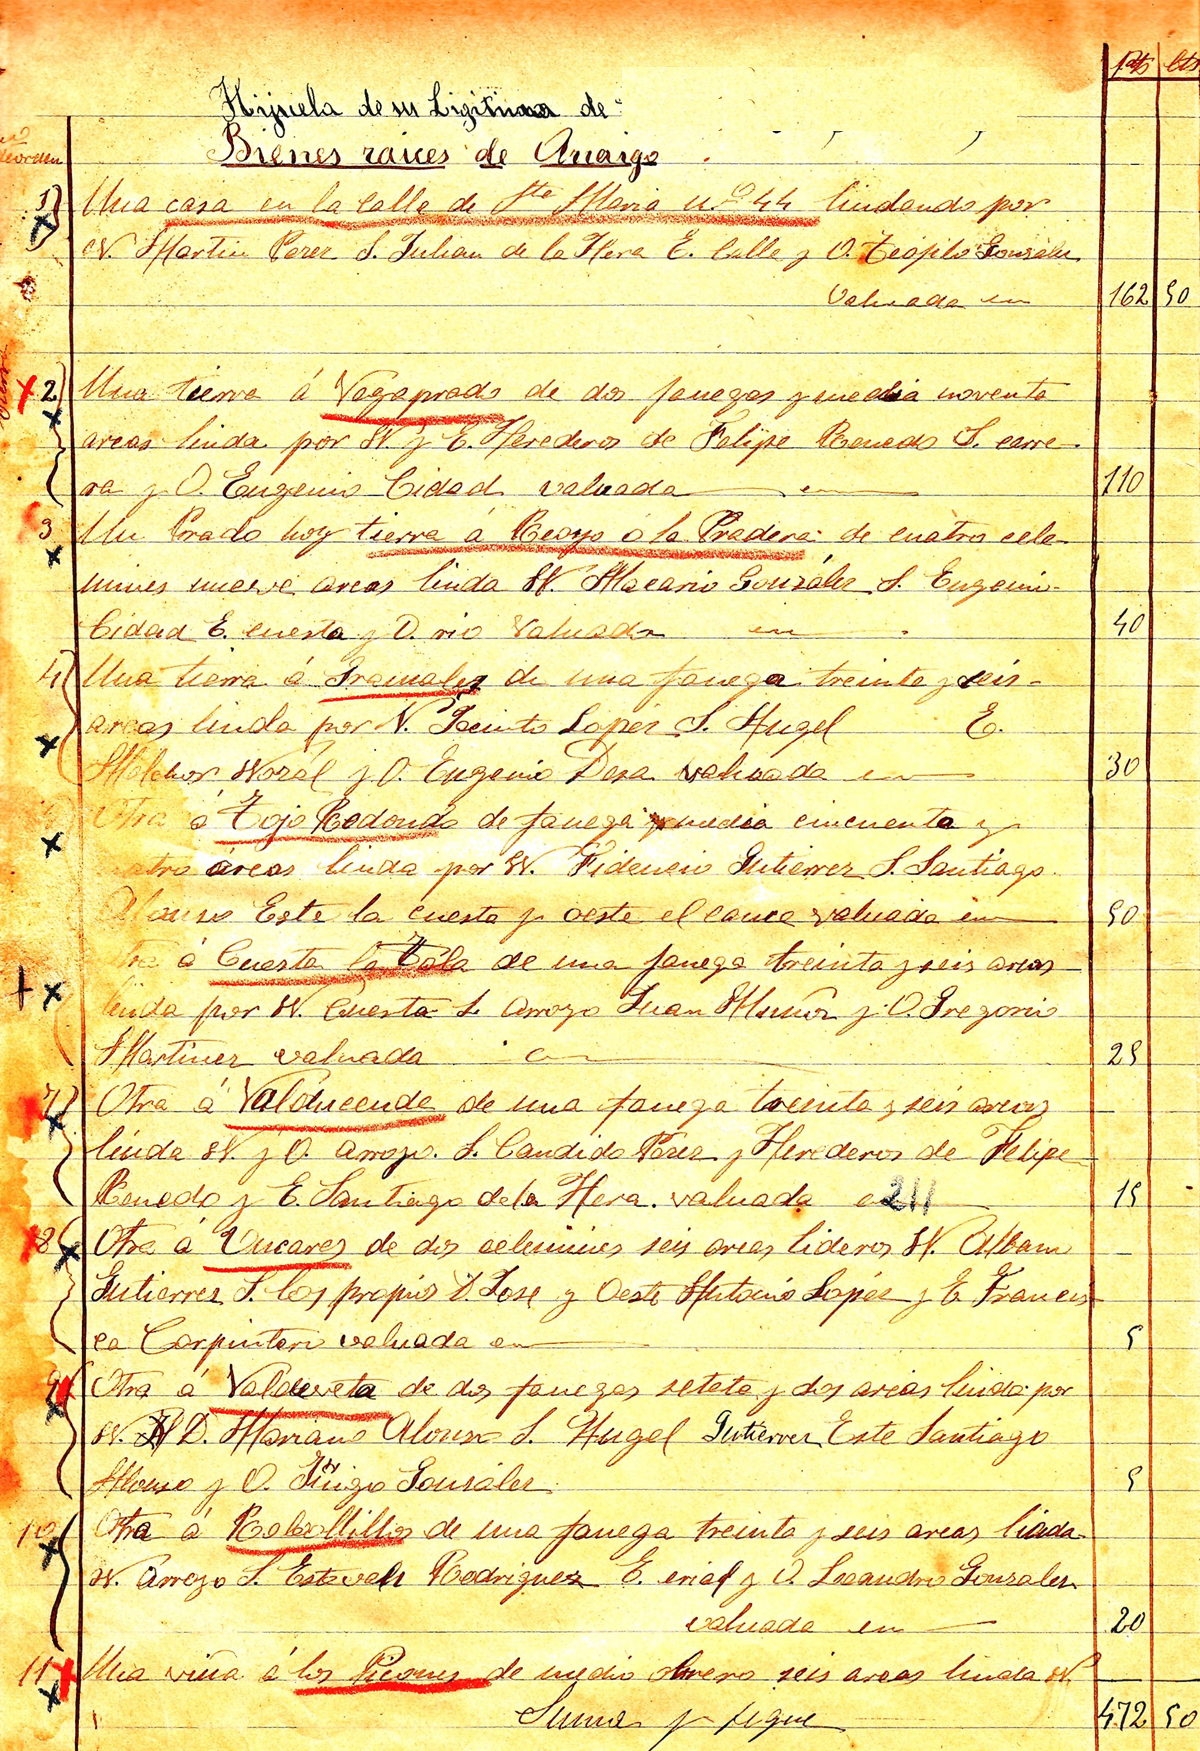 Pts cts
Hijuela de su Ligitima de
Bienes raices de Arraigo
orden
1 Una casa en la Calle de Sta Maria nº 44 lindando por
N. Martin Perez S. Julian de la Hera E. Calle y O. Teófilo González
valuada en 162 50
2 Una tierra á Vegaprado de dos fanegas y media noventa
areas linda por N. y E. Herederos de Felipe Renedo S. carre-
ra y O. Eugenio Cidad valuada en 110
3 Un Prado hoy tierra á Reoyo ó la Pradera de cuatro cele-
mines nueve areas linda N. Macario González S. Eugenio
Cidad E. cuesta y O. rio valuada en 40
4 Una tierra á Gramales de una fanega treinta y seis
areas linda por N. Jacinto Lopez S. Angel E.
Melchor Nozál y O. Eugenio Desa valuada en 30
Otra á Tojo Redondo de fanega y media cincuenta y
cuatro áreas linda por N. Fidencio Gutierrez S. Santiago
Alonso Este la cuesta y oeste el cauce valuada en 50
Otra á Cuesta la Tála de una fanega treinta y seis areas
linda por N. Cuesta S. arroyo Juan Muñoz y O. Gregorio
Martinez valuada en 25
7 Otra á Valducende de una fanega treinta y seis areas
linda N. y O. arroyo. S. Candido Perez y Herederos de Felipe
Renedo y E. Santiago de la Hera. valuada en 211 15
8 Otra á Vucares de dos celemines seis areas lideros N. Albam
Gutierrez S. los propios D. Jose y Oeste Antonio Lopéz y E. Francis
ca Carpintero valuada en 5
9 Otra á Valdeveta de dos fanegas seteta y dos areas linda por
N. D. Mariano Alonso S. Angel Gutierrez Este Santiago
Alonso y O. Iñigo González 5
10 Otra á Rebollillos de una fanega treinta y seis areas linda
N. Arroyo S. Esteveh Rodriguez E. erial y O. Leandro Gonzalez
valuada en 20
11 Una viña á los Picones de medio obrero seis areas linda N.
Suma y sigue 472 50